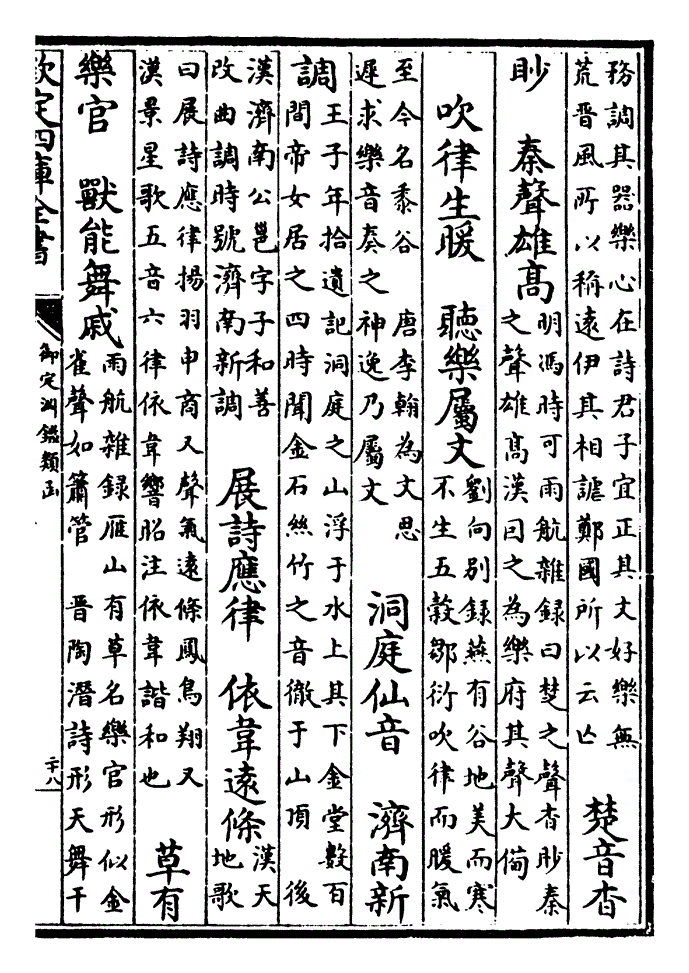 務調其器樂心在詩君子宜正其文好樂無
荒晉風所以稱遠伊其相謔鄭國所以云亡
楚音杳
眇　秦聲雄髙
明馮時可雨航雜録曰楚之聲杳眇秦
之聲雄髙漢因之為樂府其聲大偹
吹律生暖　聽樂屬文
劉向别録燕有谷地美而寒
不生五榖鄒衍吹律而暖氣
至今名黍谷　唐李翰為文思
遲求樂音奏之神逸乃屬文
洞庭仙音　濟南新
調
王子年拾遺記洞庭之山浮于水上其下金堂數百
間帝女居之四時聞金石絲竹之音徹于山頂　後
漢濟南公邕字子和善
改曲調時號濟南新調
展詩應律　依韋遠條
漢天
地歌
曰展詩應律揚羽申商又聲氣遠條鳳鳥翔又
漢景星歌五音六律依韋響昭注依韋諧和也
草有
樂官　獸能舞戚
雨航雜録雁山有草名樂官形似金
雀聲如簫管　晉陶潛詩形天舞干
欽定四庫全書
御定淵鑑類函
二十八